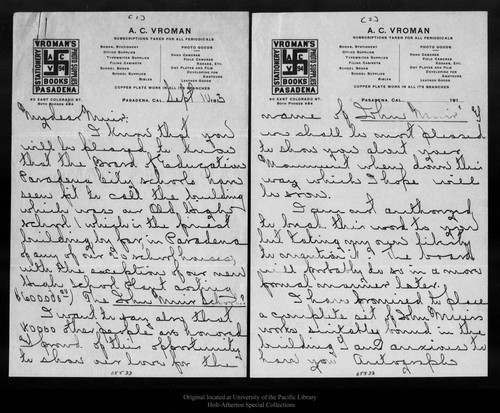 (1)
A. C. VROMAN
SUBSCRIPTIONS TAKEN FOR ALL PERIODICALS
VROMAN'S
STATIONERY
BOOKS
PASADENA
BOOKS, STATIONERY
OFFICE SUPPLIES
TYPEWRITER SUPPLIES
FILING CABINETS
SCHOOL BOOKS
SCHOOL SUPPLIES
BIBLES
PHOTO GOODS
HAND CAMERAS
FIELD CAMERAS
KODAKS, ETC.
DRY PLATES AND FILM
DEVELOPING FOR AMATEURS
LEATHER GOODS
COPPER PLATE WORK IN ALL ITS BRANCHES
60 EAST COLORADO ST.
BOTH PHONES 684
PASADENA, CAL., Sept
My dear Muir:
I know that you
will be pleased to know
that the Board of Education
Pasadena City schools have
seen fit to call the building
which was our Old High
school: which is the finest
building by far, in Pasadena
of any of our 20 school houses,
with the exception of our new
high school
The John Muir School"
I want to say that
40000 other people are honored
& proud of this opportunity
to show our love for the
05533
(2)
A. C. VROMAN
SUBSCRIPTIONS TAKEN FOR ALL PERIODICALS
VROMAN'S
STATIONERY
BOOKS
PASADENA
BOOKS, STATIONERY
OFFICE SUPPLIES
TYPEWRITER SUPPLIES
FILING CABINETS
SCHOOL BOOKS
SCHOOL SUPPLIES
BIBLES
PHOTO GOODS
HAND CAMERAS
FIELD CAMERAS
KODAKS, ETC.
DRY PLATES AND FILM
DEVELOPING FOR AMATEURS
LEATHER GOODS
COPPER PLATE WORK IN ALL ITS BRANCHES
60 EAST COLORADO ST.
BOTH PHONES 684
PASADENA, CAL., 191
name of "John Muir" &
we shall be most pleased
to show you about your
Monument when down this
way which I hope will
be soon.
I am not authorized
to break this word to you
but taking my own liberty
to mention it. The board
will probably do so in a more
formal manner later.
I have promised to place
a complete set of John Muir's
works suitably bound in the
building & am anxious to
have your Autograph
05533
Original located at University of the Pacific Library
Holt-Atherton Special Collections